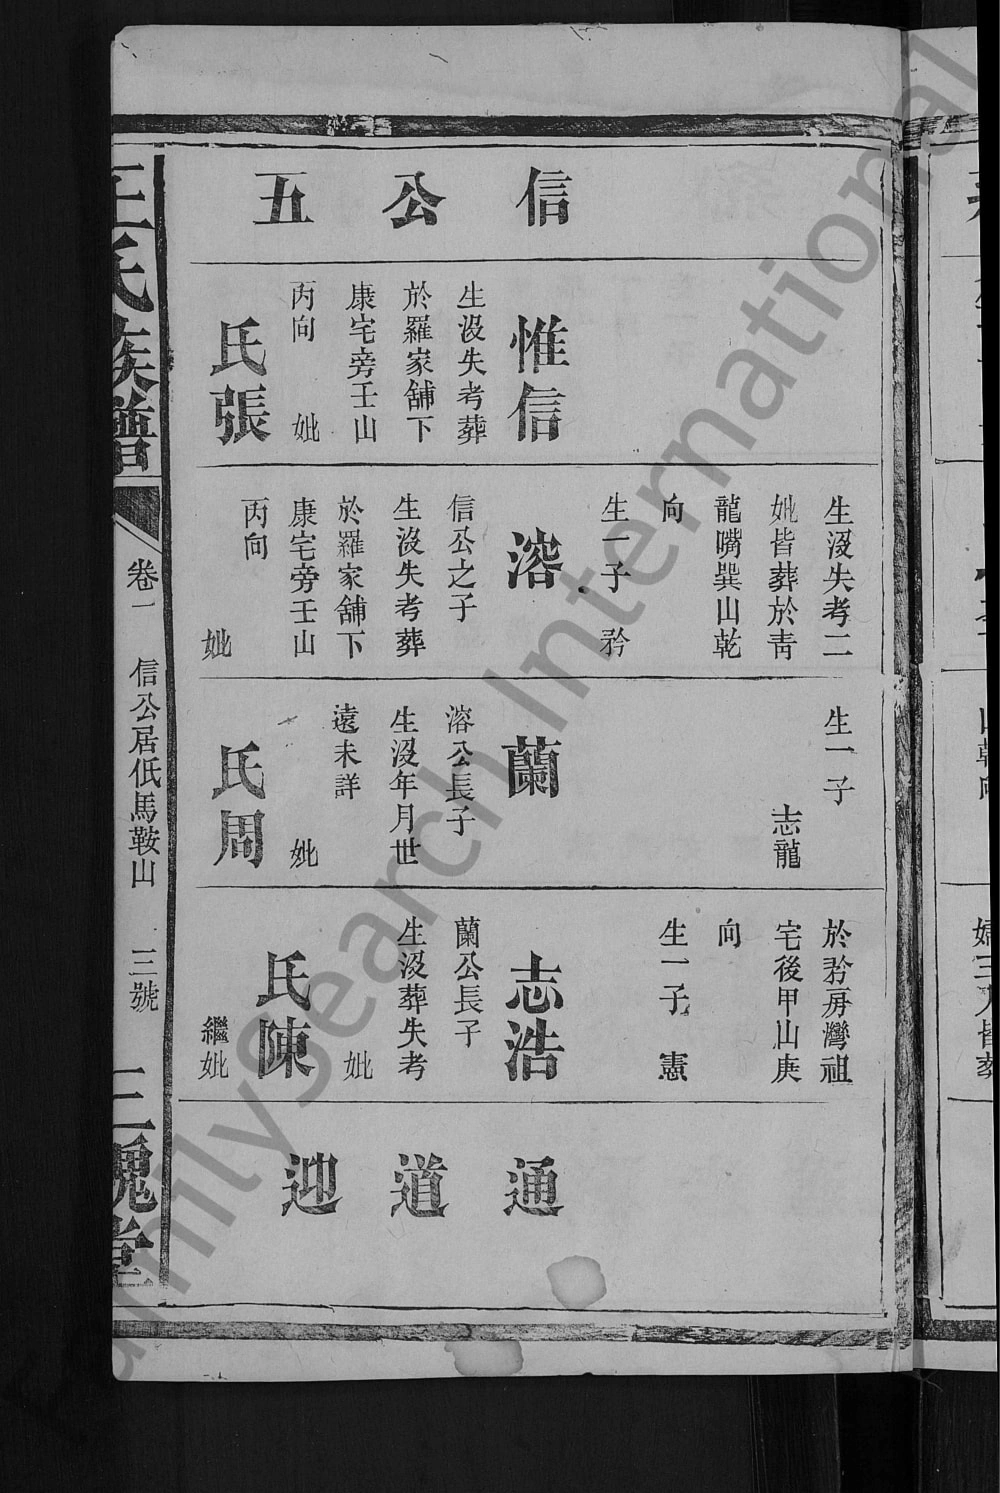 信公五
惟信
生沒失考葬
於羅家舖下
康宅旁壬山
丙向　妣
張氏
生沒失考二
妣皆葬於青
龍嘴巽山乾
向
生一子　矜
溶
信公之子
生沒失考葬
於羅家舖下
康宅旁壬山
丙向
妣
生一子
志龍
蘭
溶公長子
生沒年月世
遠未詳
妣
周氏
於矜房灣祖
宅後甲山庚
向
生一子　憲
志浩
蘭公長子
生沒葬失考
妣
陳氏
繼妣
通道迎
王氏族譜
卷一　信公居低馬鞍山　三號
三槐堂
FamilySearch International